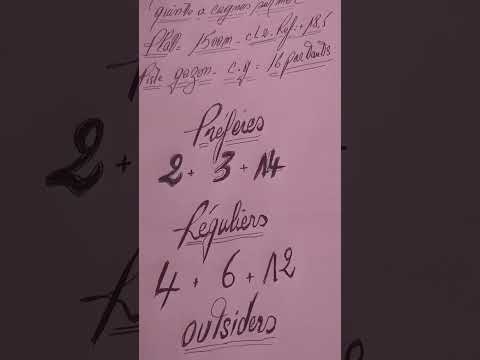 quinté a cagnes sur mer
Plat = 1500m - cl.2. Réf: + 18,5
Piste gazon - c.g = 16 partants
Préférés
2 + 3 + 14
Réguliers
4 + 6 + 12
outsiders